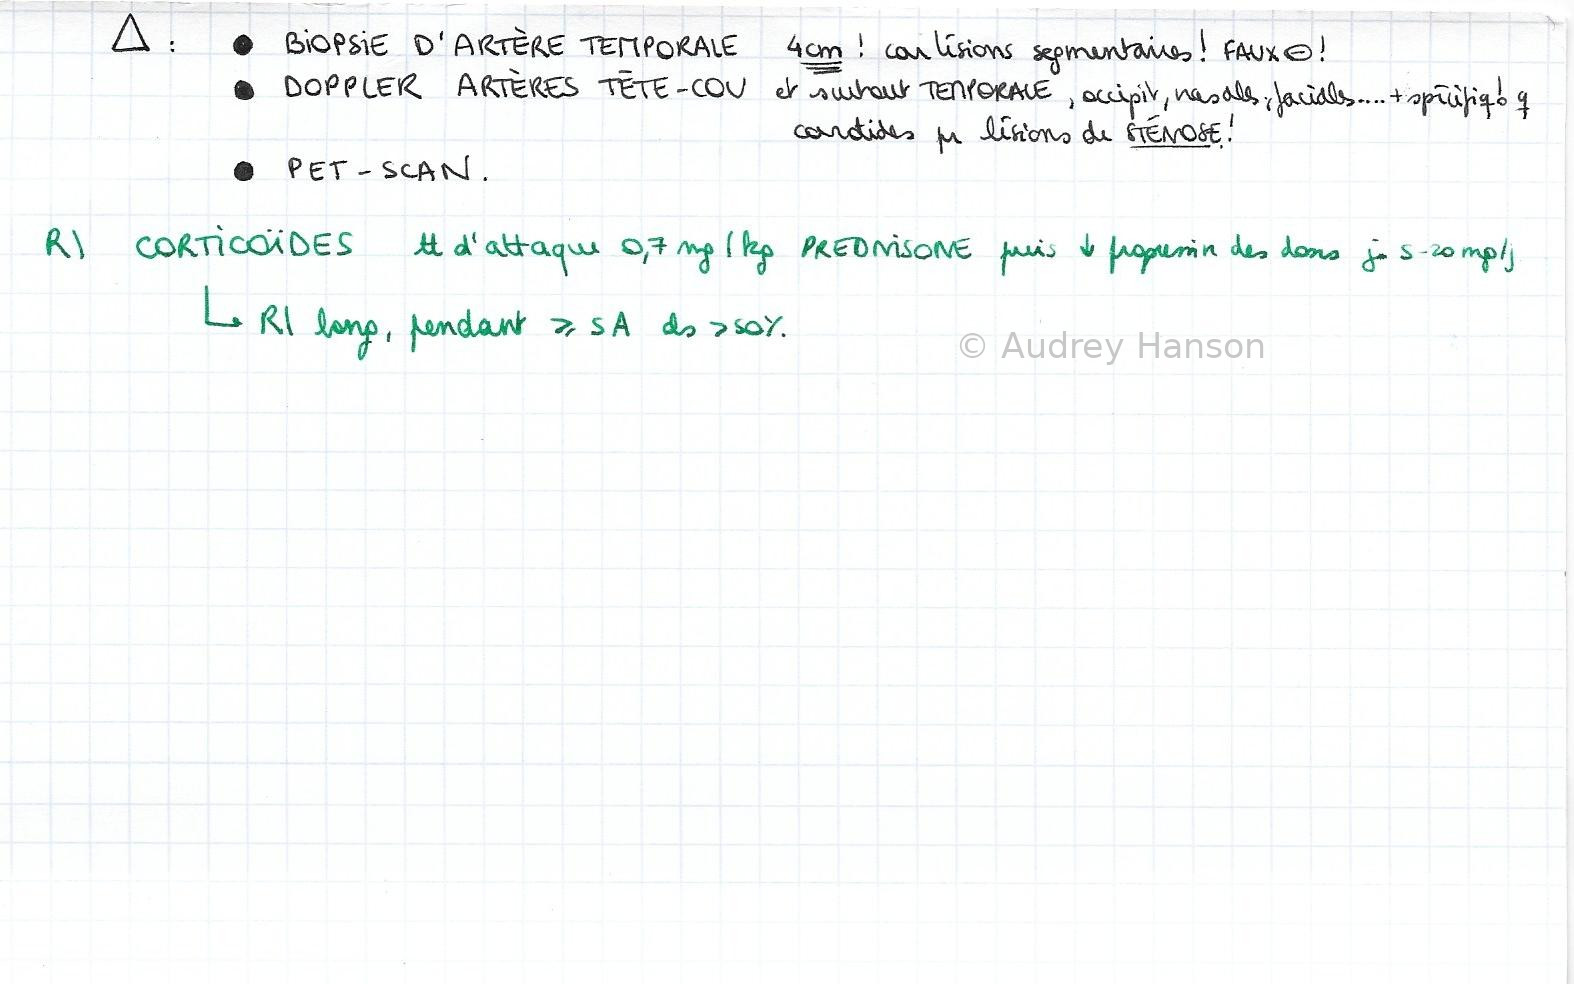 Δ : • BIOPSIE D'ARTÈRE TEMPORALE 4cm ! car lésions segmentaires ! FAUX ⊖ !
• DOPPLER ARTÈRES TÊTE-COU et surtout TEMPORALE, occipit, nasales, faciales.... + spécifiq! q
carotides pr lésions de STÉNOSE!
• PET-SCAN.
R/ CORTICOÏDES tt d'attaque 0,7 mg/kg PREDNISONE puis ↓ des doses 5-20 mg/j
↳ R/ long, pendant ≥ 5A ds >50%.
© Audrey Hanson